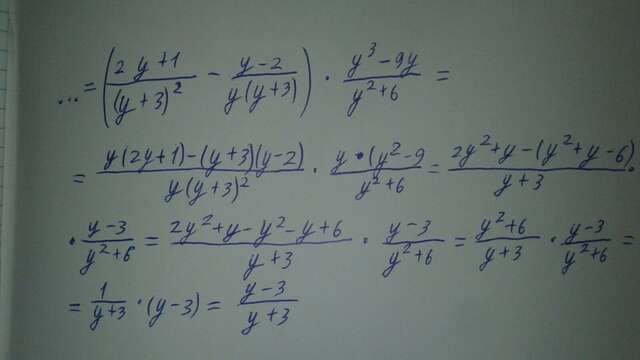 ... = ( (2y+1)/(y+3)² - (y-2)/(y(y+3)) ) · (y³-9y)/(y²+6) =
= (y(2y+1)-(y+3)(y-2))/(y(y+3)²) · (y·(y²-9)/(y²+6) = (2y²+y-(y²+y-6))/(y+3) ·
· (y-3)/(y²+6) = (2y²+y-y²-y+6)/(y+3) · (y-3)/(y²+6) = (y²+6)/(y+3) · (y-3)/(y²+6) =
= 1/(y+3) · (y-3) = (y-3)/(y+3)